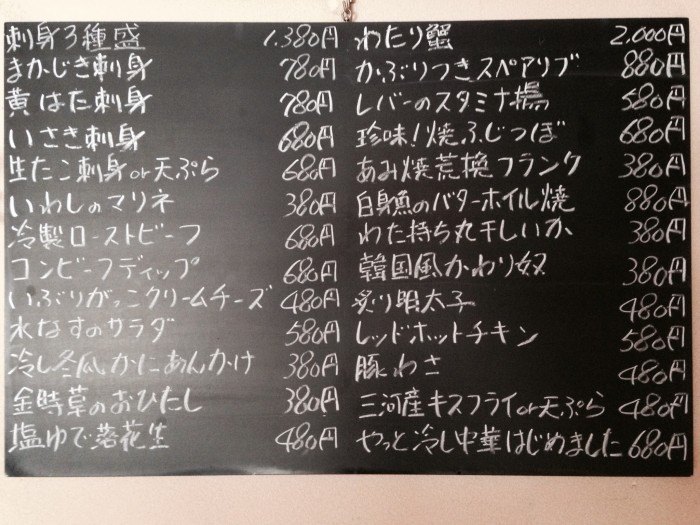 刺身3種盛 1.380円
まかじき刺身 780円
黄はた刺身 780円
いさき刺身 680円
生たこ刺身or天ぷら 680円
いわしのマリネ 380円
冷製ローストビーフ 680円
コンビーフディップ 680円
いぶりがっこクリームチーズ 480円
水なすのサラダ 580円
冷し冬瓜かにあんかけ 380円
金時草のおひたし 380円
塩ゆで落花生 480円
わたり蟹 2.000円
かぶりつきスペアリブ 880円
レバーのスタミナ揚 580円
珍味!焼ふじつぼ 680円
あみ焼荒挽フランク 380円
白身魚のバターホイル焼 880円
わた持ち丸干しいか 380円
韓国風かわり奴 380円
炙り明太子 480円
レッドホットチキン 580円
豚わさ 480円
三河産キスフライor天ぷら 480円
やっと冷し中華はじめました 680円